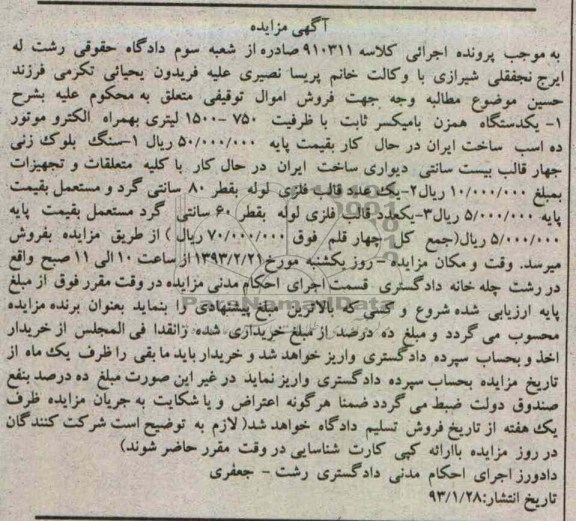 آگهی مزایده
به موجب پرونده اجرائی کلاسه ۹۱۰۳۱۱ صادره از شعبه سوم دادگاه حقوقی رشت له
ایرج نجفقلی شیرازی با وکالت خانم پریسا نصیری علیه فریدون یحیائی تکرمی فرزند
حسین موضوع مطالبه وجه جهت فروش اموال توقیفی متعلق به محکوم علیه بشرح
۱- یکدستگاه همزن بامیکسر ثابت با ظرفیت ۷۵۰ -۱۵۰۰ لیتری بهمراه الکترو موتور
ده اسب ساخت ایران در حال کار بقیمت پایه ۵۰/۰۰۰/۰۰۰ ریال ۱-سنگ بلوک زنی
جهار قالب بیست سانتی دیواری ساخت ایران در حال کار با کلیه متعلقات و تجهیزات
بمبلغ ۱۰/۰۰۰/۰۰۰ ریال۲-یک عدد قالب فلزی لوله بقطر ۸۰ سانتی گرد و مستعمل بقیمت
پایه ۵/۰۰۰/۰۰۰ ریال۳-یکعدد قالب فلزی لوله بقطر ۶۰ سانتی گرد مستعمل بقیمت پایه
۵/۰۰۰/۰۰۰ ریال(جمع کل چهار قلم فوق ۷۰/۰۰۰/۰۰۰ ریال ) از طریق مزایده بفروش
میرسد. وقت و مکان مزایده - روز یکشنبه مورخ ۱۳۹۳/۲/۲۱ از ساعت ۱۰ الی ۱۱ صبح واقع
در رشت چله خانه دادگستری قسمت اجرای احکام مدنی مزایده در وقت مقرر فوق از مبلغ
پایه ارزیابی شده شروع و کسی که بالاترین مبلغ پیشنهادی را بنماید بعنوان برنده مزایده
محسوب می گردد و مبلغ ده درصد از مبلغ خریداری شده رانقدا فی المجلس از خریدار
اخذ و بحساب سپرده دادگستری واریز خواهد شد و خریدار باید ما بقی را ظرف یک ماه از
تاریخ مزایده بحساب سپرده دادگستری واریز نماید در غیر این صورت مبلغ ده درصد بنفع
صندوق دولت ضبط می گردد ضمنا هرگونه اعتراض و یا شکایت به جریان مزایده ظرف
یک هفته از تاریخ فروش تسلیم دادگاه خواهد شد( لازم به توضیح است شرکت کنندگان
در روز مزایده باارائه کپی کارت شناسایی در وقت مقرر حاضر شوند)
دادورز اجرای احکام مدنی دادگستری رشت - جعفری
تاریخ انتشار:۹۳/۱/۲۸